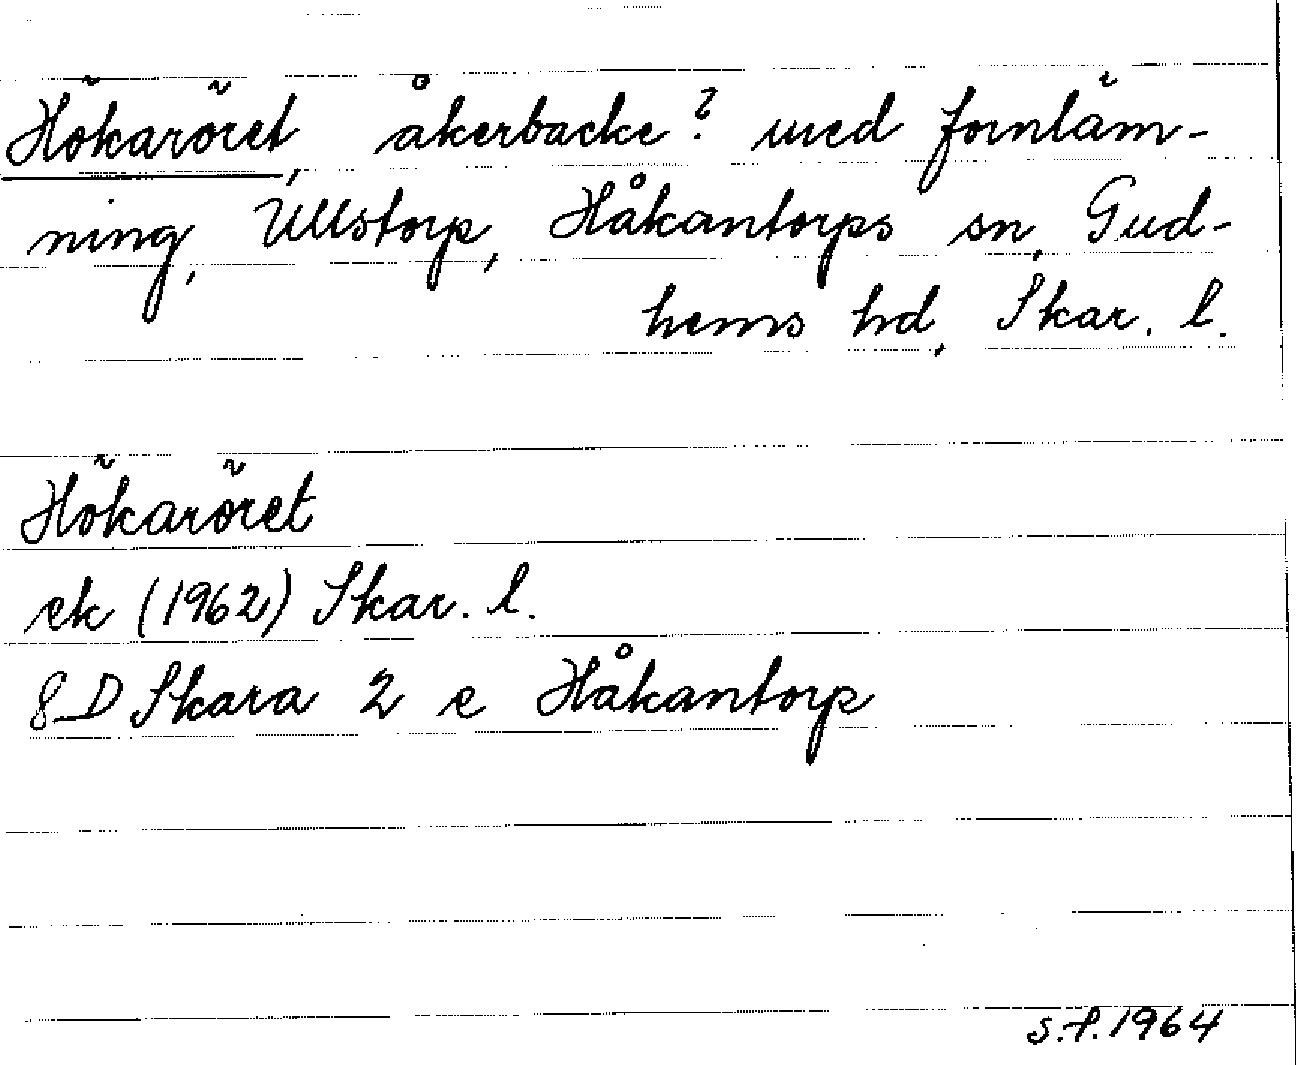 Hökaröret, åkerbacke? med fornläm-
ning, Ullstorp, Håkantorps sn, Gud-
hems hd, Skar. l.
Hökaröret
ek (1962) Skar. l.
8D Skara 2 e Håkantorp
s.f. 1964